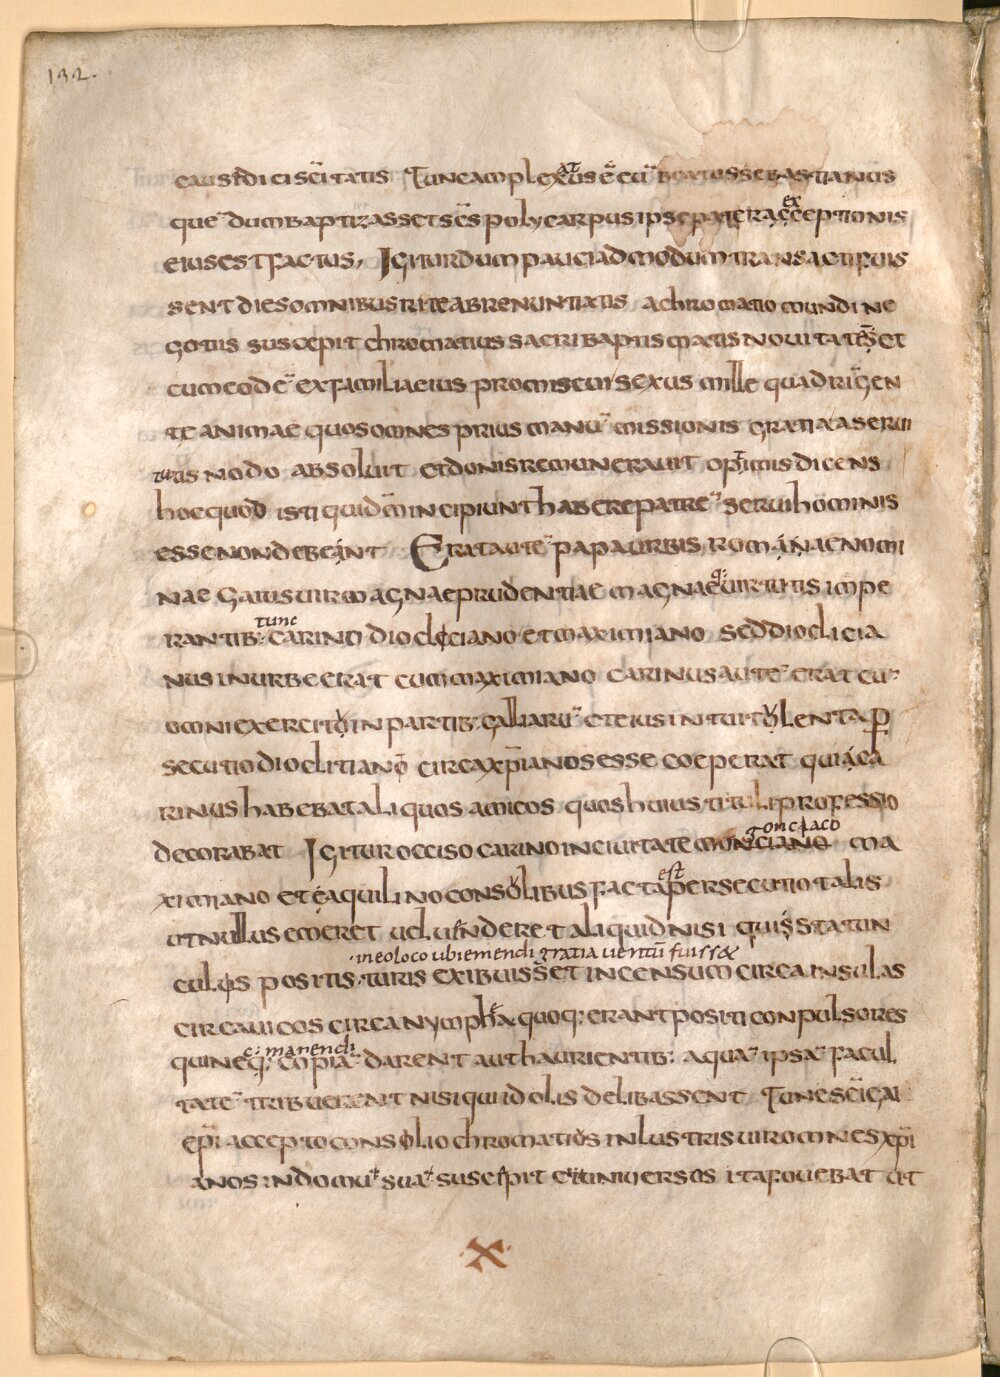 132.
causidici sc̄itatis Tunc amplexatus ē eū beatus sebastianus
que᷉ dum baptizasset sc̄s polycarpus ipse pater ac exceptionis
eius est factus, Igitur dum pauci admodum transacti fuis
sent dies omnibus rite abrenuntiatis a chromatio mundi ne
gotiis suscepit chromatius sacri baptismatis nouitatē & et
cum eode᷉ ex familia eius promiscui sexus mille quadrigen
te animae quos omnes prius manu᷉ missionis gratia a serui
tutis nodo absoluit et donis remunerauit optimis dicens
hoc quod isti quidem incipiunt habere patre᷉ serui hominis
esse non debeant Erat aute᷉ papa urbis romanae nomi
nae Gaius uir magnae prudentiae magnaeq; uirtutis impe
rantib: tunc carino diocleciano et maximiano sed dioclicia
nus in urbe erat cum maximiano carinus aute᷉ erat cu᷉
omni exercitu in partib: galliaru᷉ et eius intuitu lenta ꝑ
secutio dioclitiano circa xp̄ianos esse coeperat quia ca
rinus habebat aliquos amicos quos huius tituli professio
decorabat Igitur occiso carino in ciuitate
ximiano et e aquilino consulibus facta est persecutio talis
ut nullus emeret uel uendere t aliquid nisi qui statun
·in eo loco ubi emendi gratia uentū fuiss&
culis positis·turis exibuisset incensum circa insulas
circa uicos circa nymphea quoq; erant positi conpulsores
c: manendi
quineq; copia᷉ darent aut haurientib: aqua᷉ ipsa᷉ facul,
tate᷉ tribuerent nisi qui idolis delibassent Tunc sc̄i gai
ep̄i accepto consolio chromatius inlustris uir omnes xp̄i
anos in domu᷉ sua᷉ suscepit et uniuersos ita fouebat ut
x